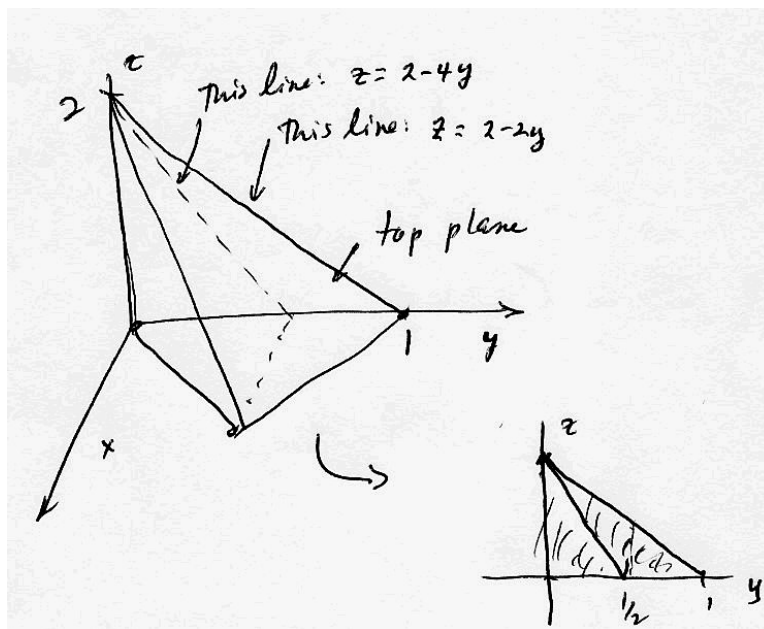 z
2
This line: z = 2-4y
This line: z = 2-2y
top plane
1
y
x
z
1/2
1
y